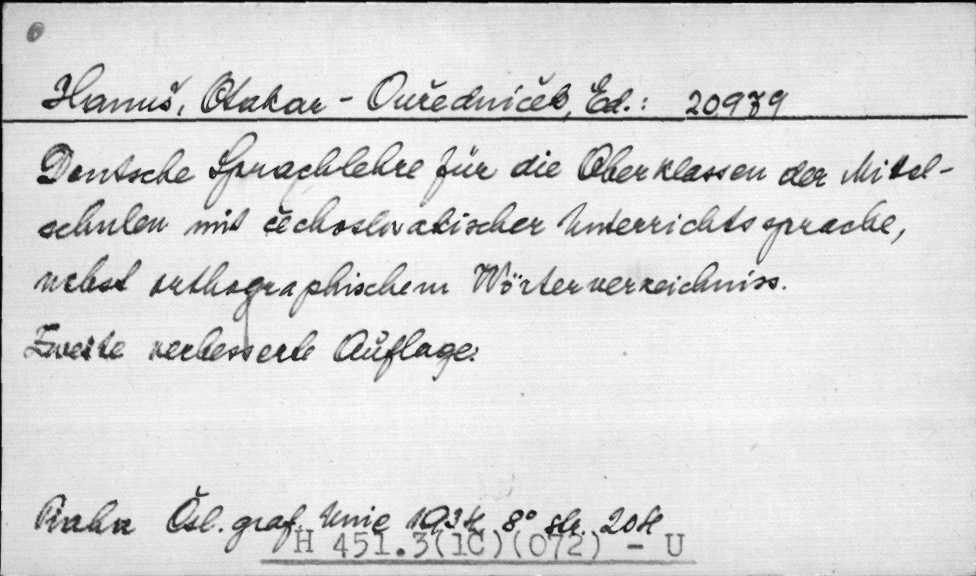 Hanuš, Otakar - Ouředníček, Ed.: 20979
Deutsche Sprachlehre für die Oberklassen der Mitel-
schulen mit čechoslovakischer Unterrichtssprache,
nebst orthographischem Wörterverzeichniss.
Zweite verbesserte Auflage.
Praha Čsl. graf. Unie 1934 8° str. 204
H 451.3(1C)(072) - U